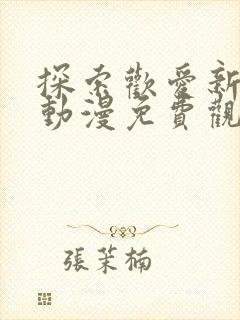 探索歡愛新
動漫免費觀
張茉楠